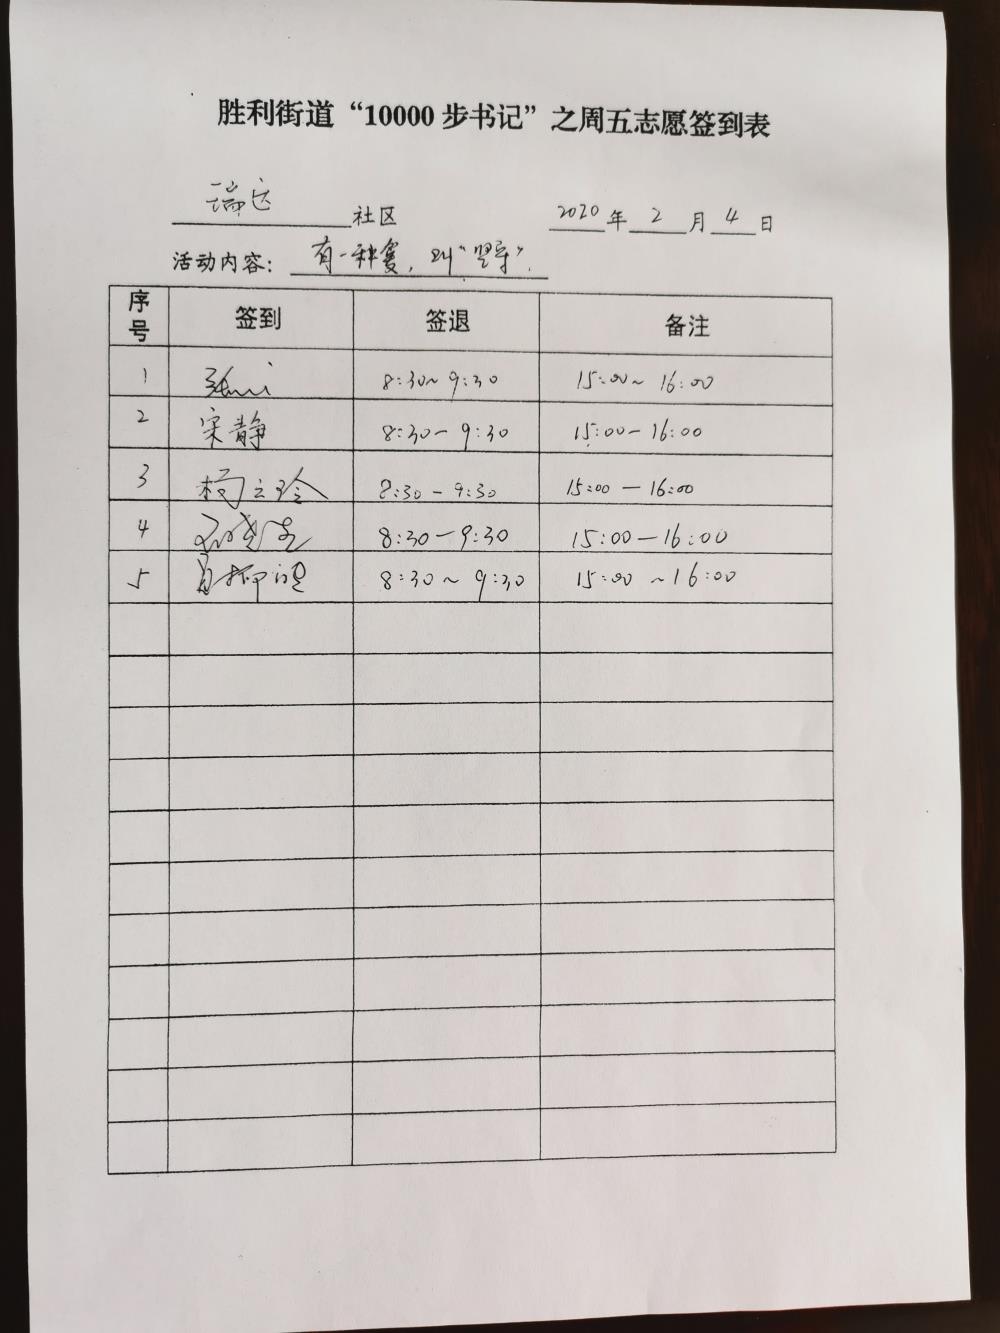 胜利街道“10000步书记”之周五志愿签到表
瑞达社区 2020年2月4日
活动内容：有一种爱，叫“坚守”.
序号 签到 签退 备注
1 8:30~9:30 15:00~16:00
2 宋静 8:30-9:30 15:00-16:00
3 杨立玲 8:30-9:30 15:00-16:00
4 8:30-9:30 15:00-16:00
5 8:30~9:30 15:00~16:00